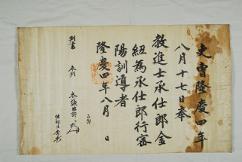 吏曹隆慶四年
八月十七日奉
教進士承仕郎金
紐為承仕郎行
陽訓導者
隆慶四年八月 日
判書 參判 參議臣
正郎
佐郎臣